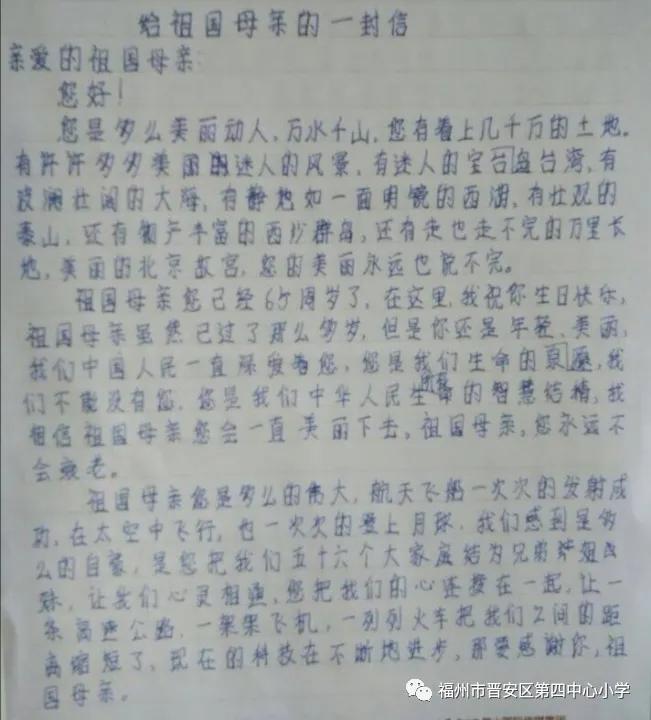 给祖国母亲的一封信
亲爱的祖国母亲:
您好!
您是多么美丽动人,万水千山,您有着上几千万的土地。
有许许多多美丽的迷人的风景,有迷人的宝岛台湾,有
波澜壮阔的大海,有静地如一面明镜的西湖,有壮观的
泰山,还有物产丰富的西沙群岛,还有走也走不完的万里长
地,美丽的北京故宫,您的美丽永远也说不完。
祖国母亲您已经65周岁了,在这里,我祝你生日快乐,
祖国母亲虽然已过了那么多岁,但是你还是年轻、美丽,
我们中国人民一直深爱着您,您是我们生命的泉源,我
们不能没有您,您是我们中华人民生命的智慧结精,我
相信祖国母亲您会一直美丽下去,祖国母亲,您永远不
会衰老。
祖国母亲您是多么的伟大,航天飞船一次次的发射成
功,在太空中飞行,也一次次的登上月球,我们感到是多
么的自豪,是您把我们五十六个大家庭结为兄弟姐
妹,让我们心灵相通,您把我们的心连接在一起,让一
条高速公路,一架架飞机,一列列火车把我们之间的距
离缩短了,现在的科技在不断地进步,那要感谢你,祖
国母亲。
福州市晋安区第四中心小学